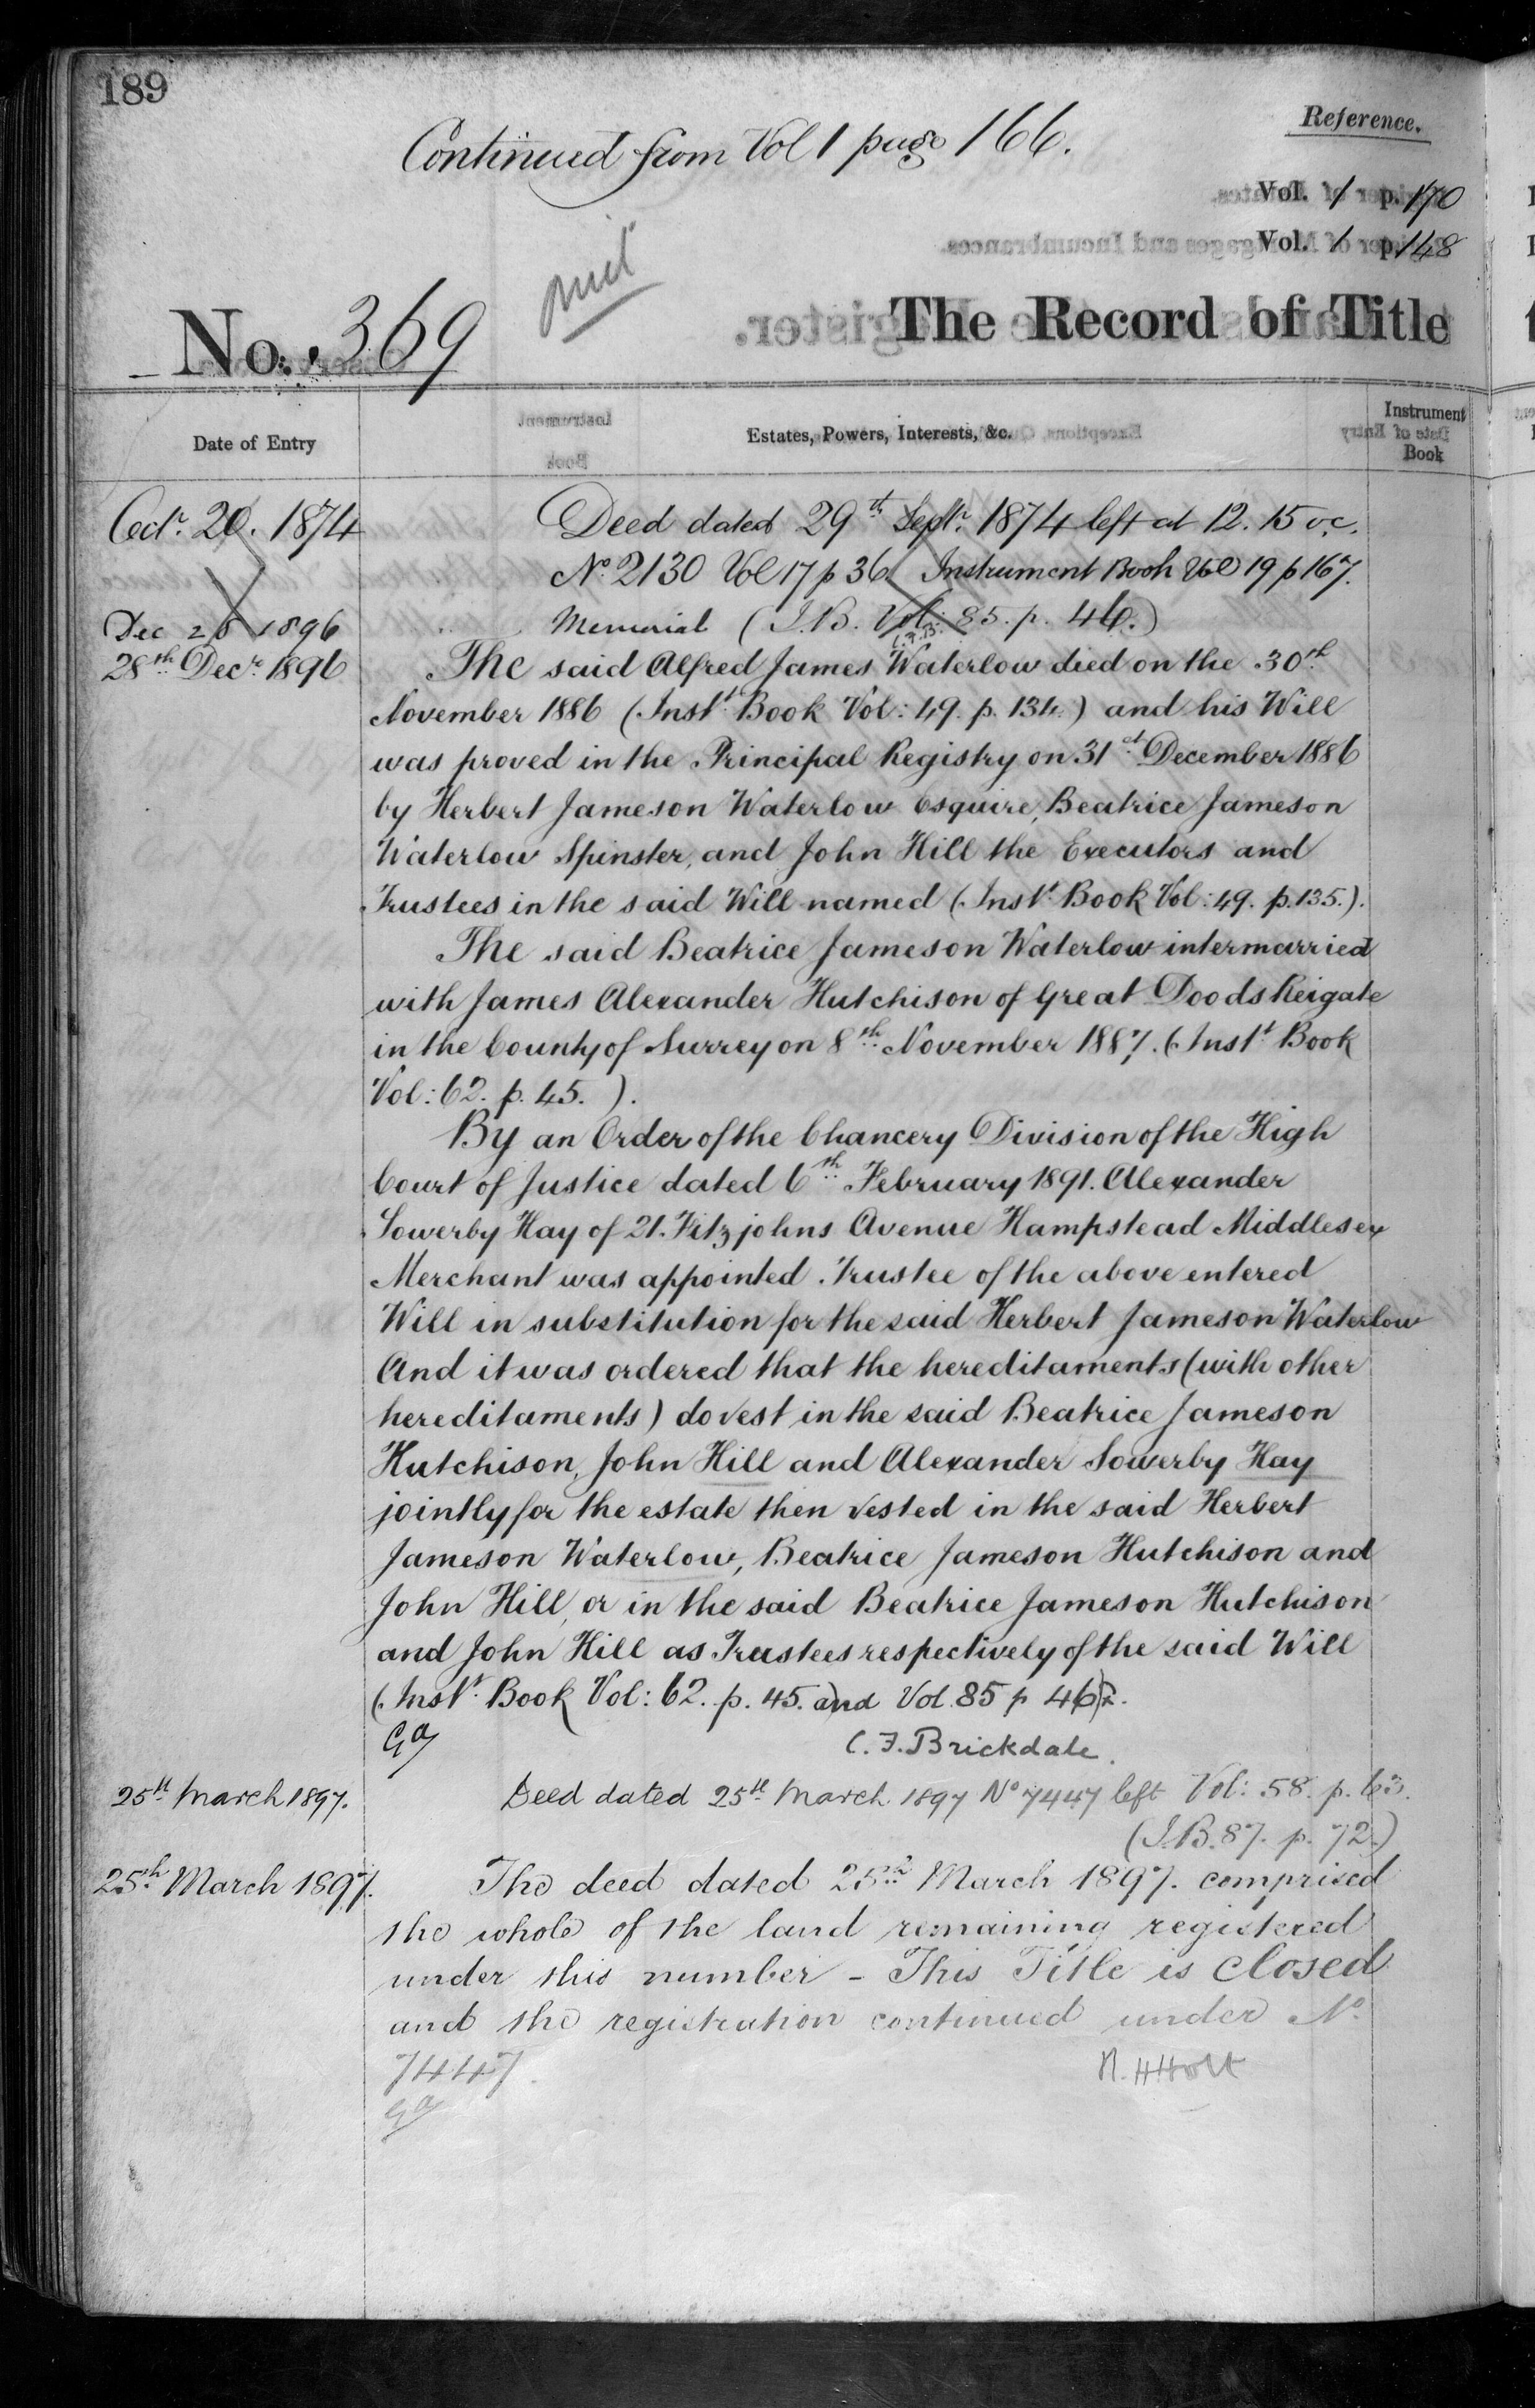 189
Continued from Vol 1 page 166.
Reference.
Vol. 1 p. 170
Vol. 1 p. 148
No. 369
The Record of Title
Date of Entry
Estates, Powers, Interests, &c.
Instrument
Book
Octr. 20. 1874
Deed dated 29th Septr. 1874 left at 12.15 oc.
No. 2130 Vol 17 p 36. Instrument Book Vol 19 p 167.
Dec 28 1896
Memorial (I.B. Vol: 85. p. 46.)
C.F.B.
28th Decr. 1896
The said Alfred James Waterlow died on the 30th
November 1886 (Inst. Book Vol: 49. p. 134.) and his Will
was proved in the Principal Registry on 31st December 1886
by Herbert Jameson Waterlow Esquire, Beatrice Jameson
Waterlow Spinster, and John Hill the Executors and
Trustees in the said Will named (Inst. Book Vol: 49. p. 135.).
The said Beatrice Jameson Waterlow intermarried
with James Alexander Hutchison of Great Doods Reigate
in the County of Surrey on 8th November 1887. (Inst. Book
Vol: 62. p. 45. ).
By an Order of the Chancery Division of the High
Court of Justice dated 6th February 1891. Alexander
Sowerby Hay of 21. Fitzjohns Avenue Hampstead Middlesex
Merchant was appointed Trustee of the above entered
Will in substitution for the said Herbert Jameson Waterlow
And it was ordered that the hereditaments (with other
hereditaments) do vest in the said Beatrice Jameson
Hutchison, John Hill and Alexander Sowerby Hay
jointly for the estate then vested in the said Herbert
Jameson Waterlow, Beatrice Jameson Hutchison and
John Hill, or in the said Beatrice Jameson Hutchison
and John Hill as Trustees respectively of the said Will
(Inst. Book Vol: 62. p. 45. and Vol. 85 p 46).
C. F. Brickdale.
25th March 1897.
Deed dated 25th March 1897 No 7447 left Vol: 58. p. 63.
(I.B. 87. p. 72.)
25th March 1897.
The deed dated 25th March 1897. comprised
the whole of the land remaining registered
under this number - This Title is closed
and the registration continued under No.
7447.
R. H Holt